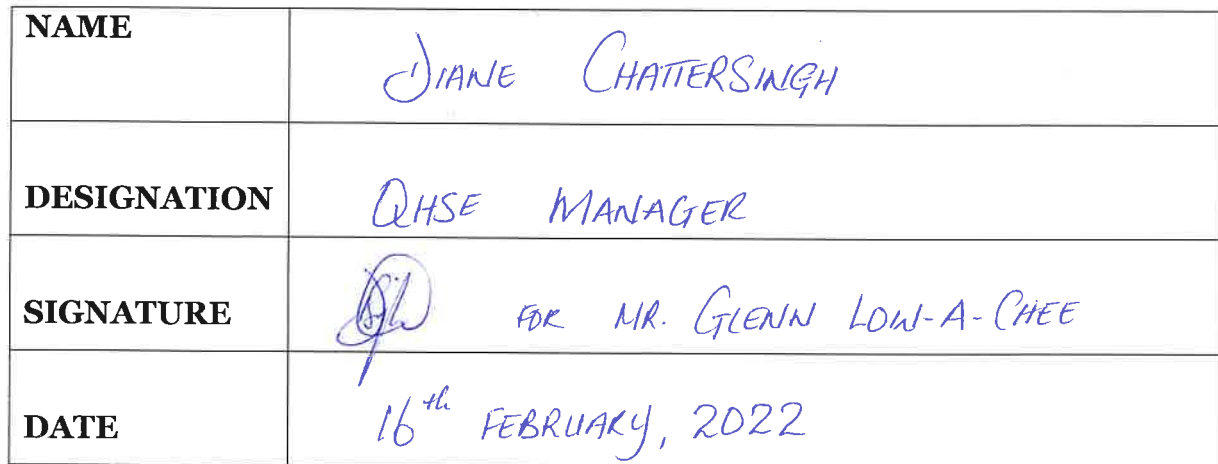 NAME
DIANE CHATTERSINGH
DESIGNATION
QHSE MANAGER
SIGNATURE
FOR MR. GLENN LOW-A-CHEE
DATE
16th FEBRUARY, 2022